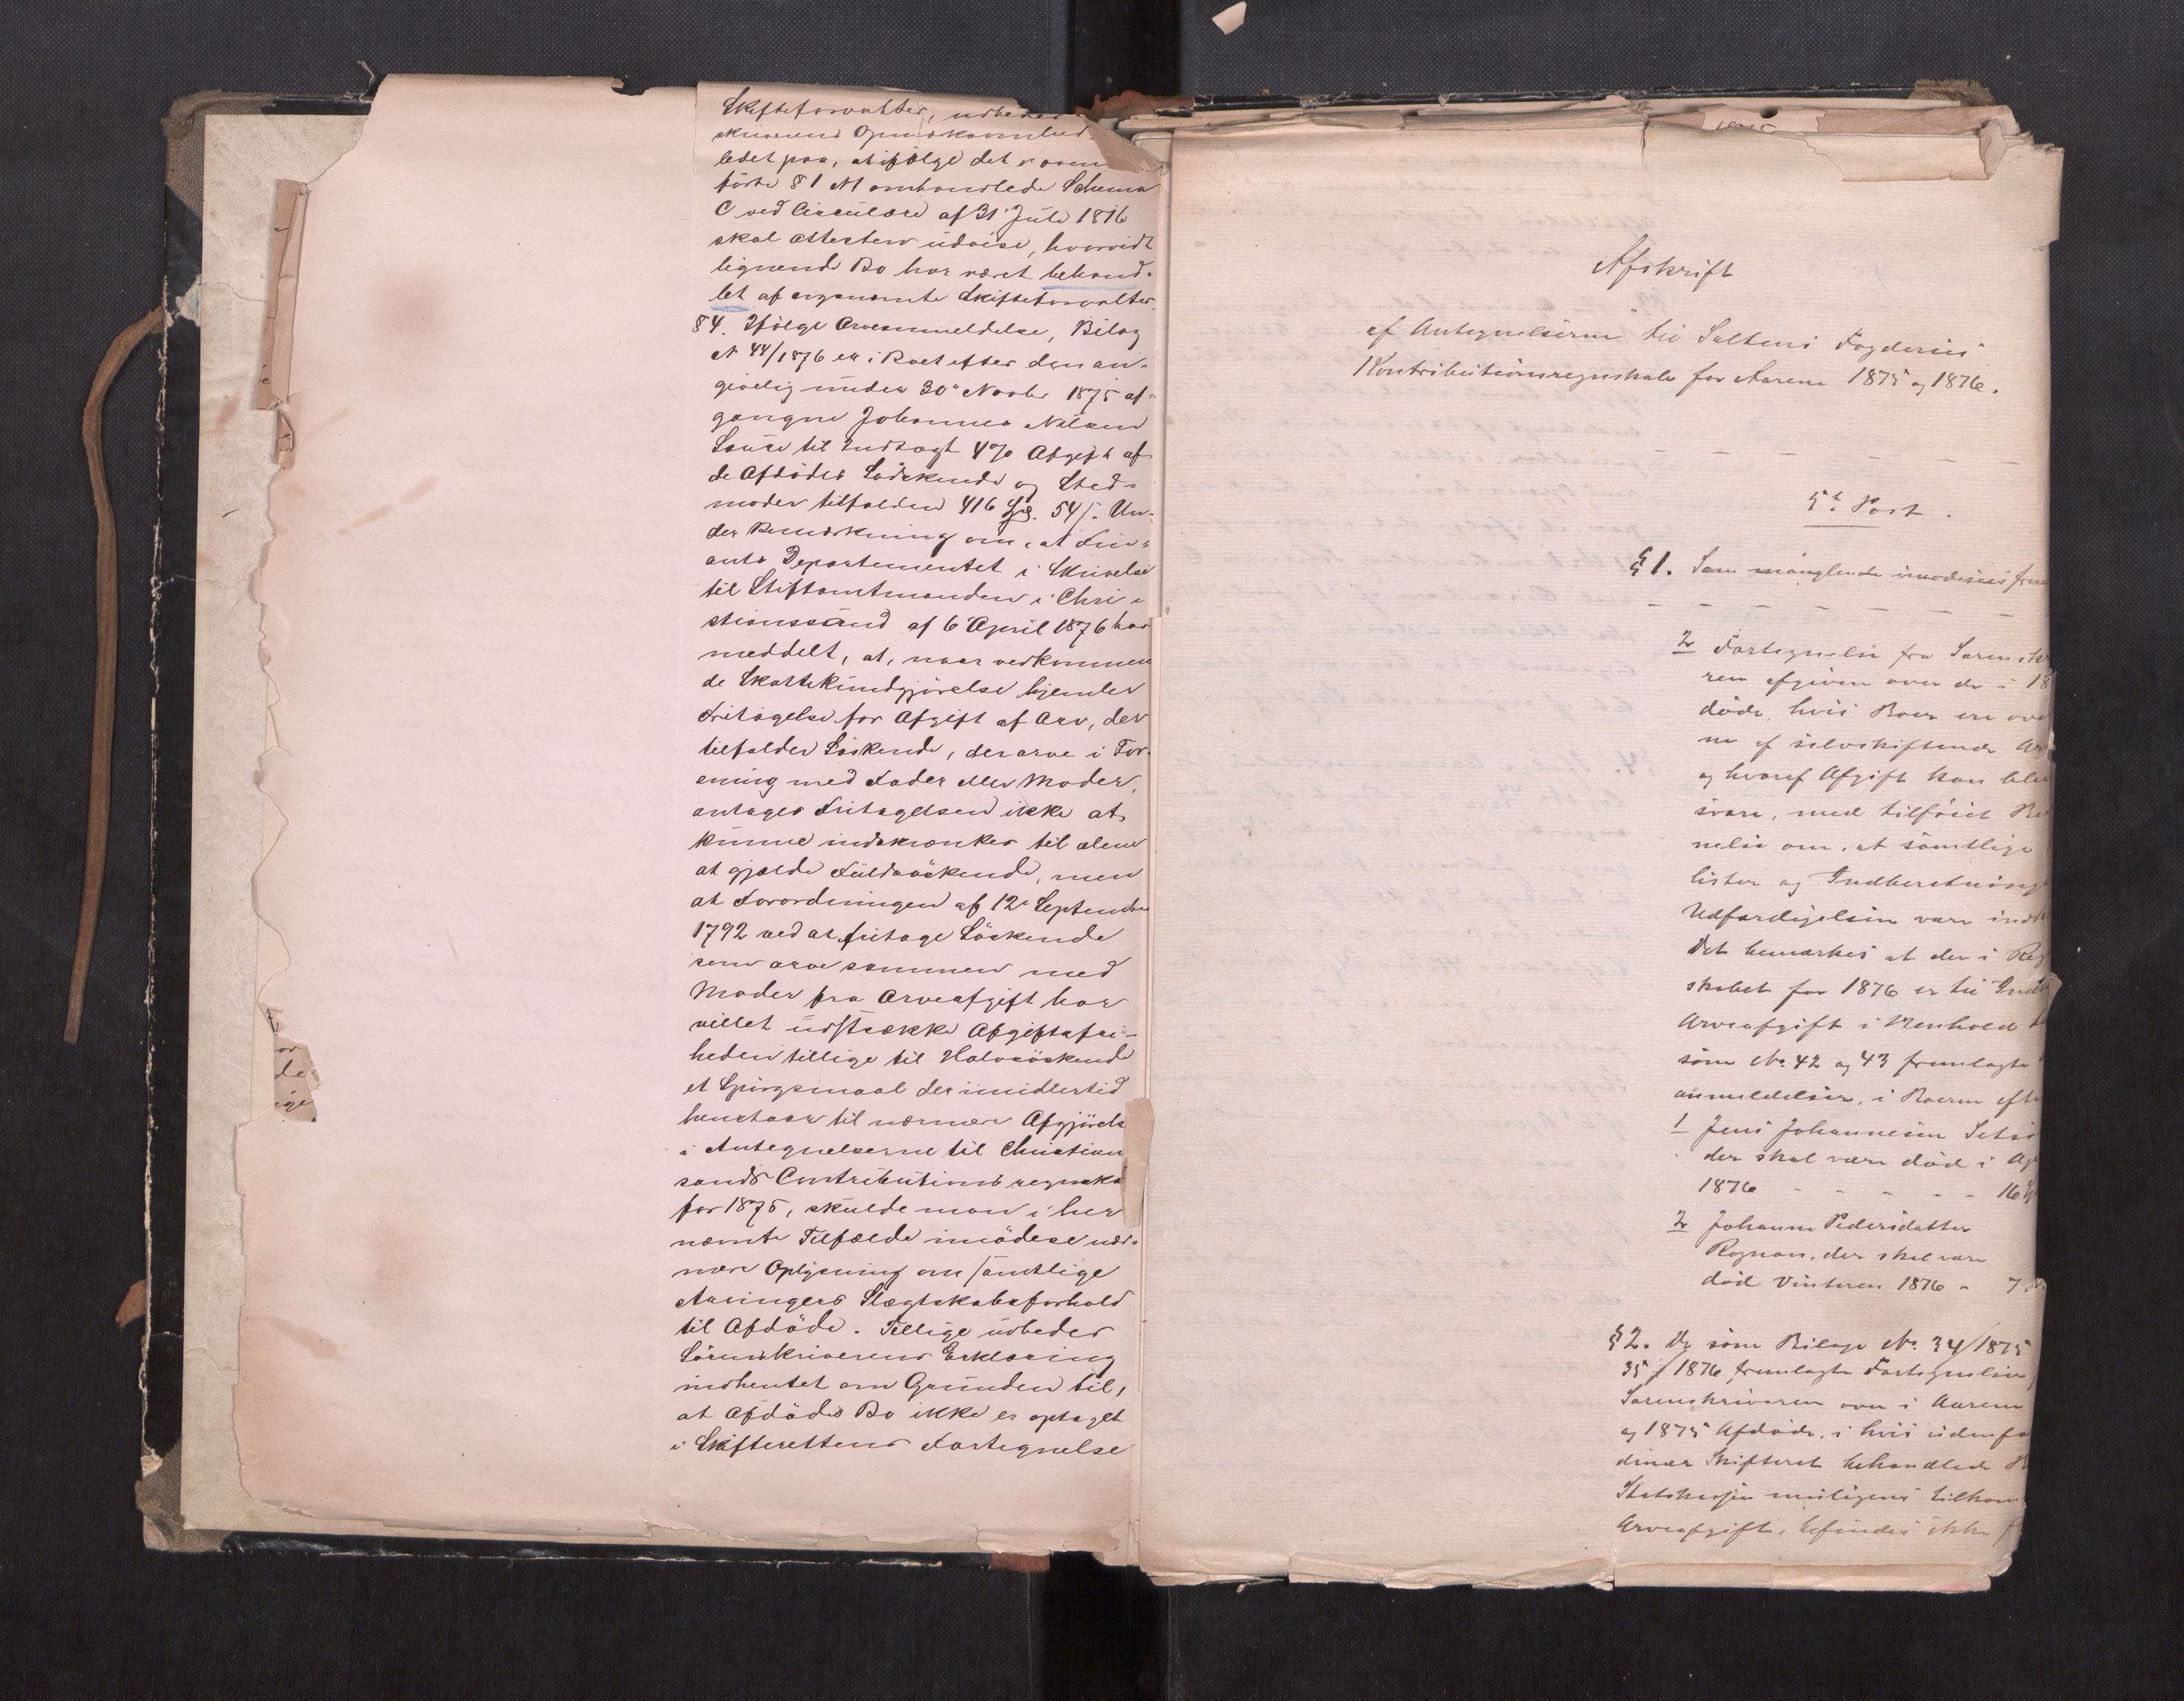 Skifteforvalter, udbedes
skriverens Opmærksomhed
ledet paa, at ifølge det
førte § 1 N 1 omhandlede Schema
C ved Circulære af 31 Juli 1816
skal Attesten udvise, hvorvidt
lignende Bo har været behand-
let af ergnævnte Skifteforvalter.
§ 4. Ifølge Arveanmeldelse, Bilag
N 44/1876 er i Boet efter den an-
givelig under 30 Novbr 1875 af-
gangne Johannes Nilsen
til Indtægt 4% Afgift af
de Afdødes Södskende og Sted-
moder tilfalden 416 Spd. 54 s. Un-
der Bemærkning om, at Fin-
ants Departementet i Skrivelse
til Stiftamtmanden i Chri-
stianssand af 6 April 1876 har
meddelt, at, naar vedkommen
de Skattekundgjörelse hjemler
Fritagelse for Afgift af Arv, der
tilfalder Söskende, der arve i For-
ening med Fader eller Moder,
antages Fritagelsen ikke at
kunne indskrænkes til alene
at gjælde Fuldsöskende, men
at Forordningen af 12 September
1792 ved at fritage Söskende
som arve sammen med
Moder fra Arveafgift har
villet udstrække Afgiftsfri-
heden tillige til Halvsöskende
et Spörgsmaal der imidlertid
henstaar til nærmere Afgjörelse
i Antegnelserne til Christian
sands Contributions regnska
for 1875, skulde man i her
nævnte Tilfælde imödese nær-
mere Oplysning om samtlige
Arvingers Slægtskabsforhold
til Afdöde. Tillige udbedes
Sörenskriverens Erklæring
indhentet om Grunden til,
at Afdödes Bo ikke er optaget
i Skifterettens Fortegnelse
Afskrift
af Antegnelserne til Saltens Fogderies
Kontributionsregnskab for Aarene 1875 og 1876.
5t Post.
§ 1. Som manglende imødesees frem
2 Fortegnelse fra Sorensk
ren afgiven over de i 18
döde, hvis Boer ere ove
ne af selvskiftende Ar
og hvoraf Afgift kan blive
svare, med tilföiet Be
nelse om, at samtlige
lister og Indberetning
Udfærdigelsen vare ind
Det bemærkes at der i Reg
skabet for 1876 er til Indt
Arveafgift i Henhold t
som No 42 og 43 fremlagte
anmeldelser, i Boerne efte
1 Jens Johannesen Setsö
der skal være död i Ap
1876 - - - - - 16
2 Johanne Pedersdatter
Rognan, der skal være
död Vinteren 1876 - 7
§ 2. De som Bilage No. 34/1875
35/1876 fremlagte Fortegnelser
Sorenskriveren over i Aarene
og 1875 Afdöde, i hvis udenfo
dinær Skifteret behandlede B
Statskassen muligens tilkom
Arveafgift, befindes ikke f
or
de
ige